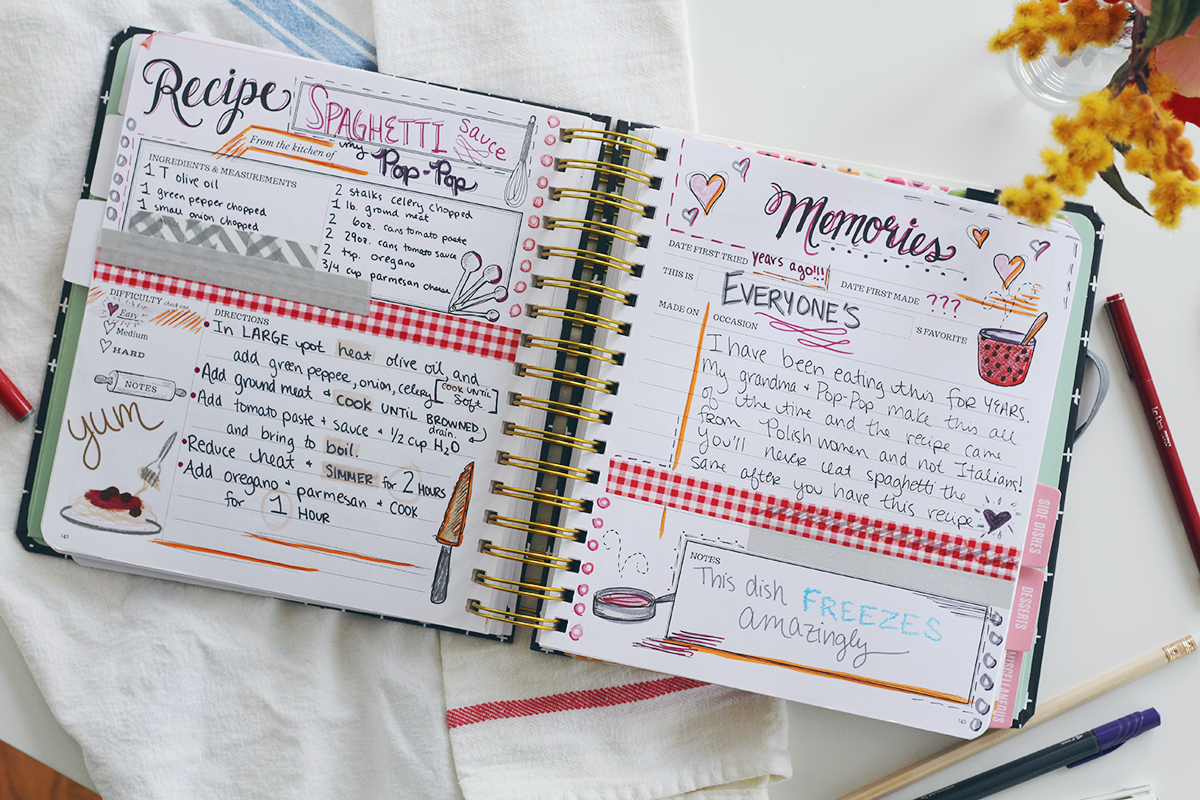 Recipe
SPAGHETTI sauce
From the kitchen of my Pop-Pop
INGREDIENTS & MEASUREMENTS
1 T olive oil
1 green pepper chopped
1 small onion chopped
2 stalks celery chopped
1 lb. ground meat
2 6oz. cans tomato paste
2 29oz. cans tomato sauce
2 tsp. oregano
3/4 cup parmesan cheese
DIFFICULTY check one
Easy
Medium
HARD
NOTES
yum
DIRECTIONS
• In LARGE pot heat olive oil and
add green pepper, onion, celery [COOK UNTIL Soft]
• Add ground meat + COOK UNTIL BROWNED
drain.
• Add tomato paste + sauce + 1/2 cup H2O
and bring to boil.
• Reduce heat + SIMMER for 2 HOURS
• Add oregano + parmesan + COOK
for 1 HOUR
Memories
DATE FIRST TRIED years ago!!! DATE FIRST MADE ???
THIS IS EVERYONE'S 'S FAVORITE
MADE ON OCCASION
I have been eating this for YEARS.
My grandma + Pop-Pop make this all
of the time and the recipe came
from Polish women and not Italians!
You'll never eat spaghetti the
same after you have this recipe
NOTES
This dish FREEZES
amazingly
SIDE DISHES
DESSERTS
MISCELLANEOUS
Le Pen